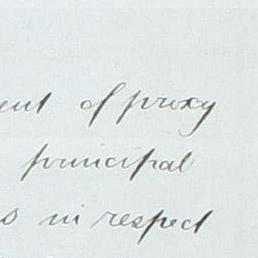 ent of proxy
principal
s in respect